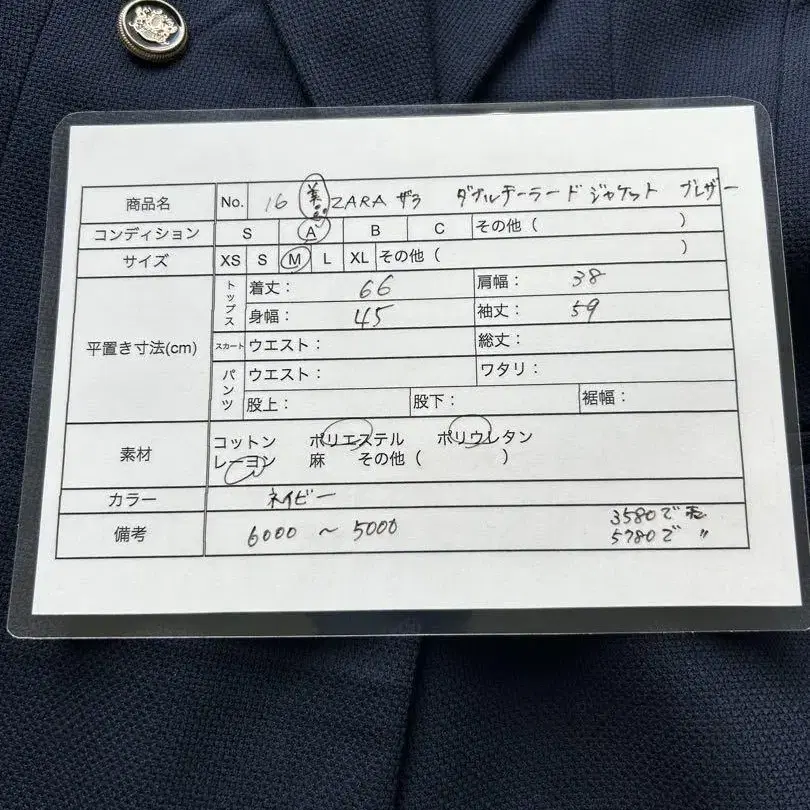 商品名 No. 16 美品 ZARA ザラ ダブルテーラードジャケット ブレザー
コンディション S A B C その他（ ）
サイズ XS S M L XL その他（ ）
平置き寸法(cm)
トップス 着丈： 66 肩幅： 38
身幅： 45 袖丈： 59
スカート ウエスト： 総丈：
パンツ ウエスト： ワタリ：
股上： 股下： 裾幅：
素材 コットン ポリエステル ポリウレタン
レーヨン 麻 その他（ ）
カラー ネイビー
備考 6000 ～ 5000 3580で売
5780で 〃